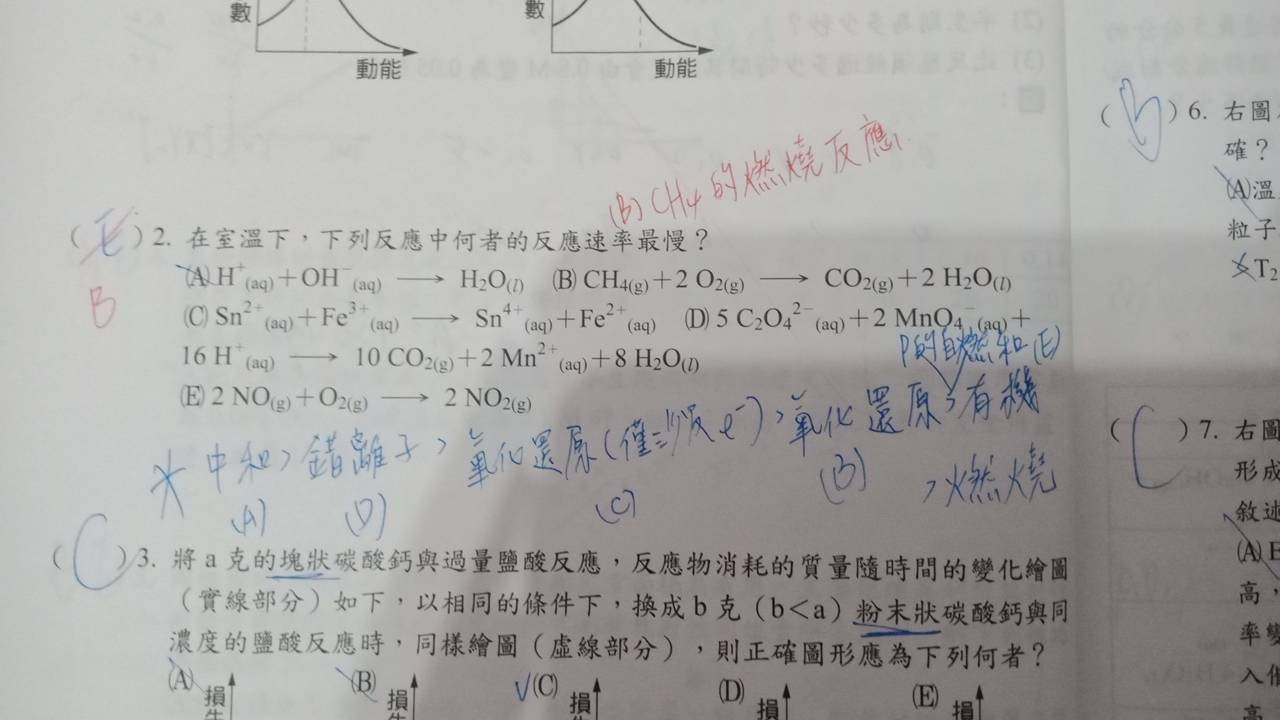 數
動能
數
動能
(B) CH4 的燃燒反應
(E) 2. 在室溫下，下列反應中何者的反應速率最慢？
B
(A) H⁺(aq)＋OH⁻(aq) ⟶ H₂O(l) (B) CH₄(g)＋2 O₂(g) ⟶ CO₂(g)＋2 H₂O(l)
(C) Sn²⁺(aq)＋Fe³⁺(aq) ⟶ Sn⁴⁺(aq)＋Fe²⁺(aq) (D) 5 C₂O₄²⁻(aq)＋2 MnO₄⁻(aq)＋
16 H⁺(aq) ⟶ 10 CO₂(g)＋2 Mn²⁺(aq)＋8 H₂O(l)
P的自燃和(E)
(E) 2 NO(g)＋O₂(g) ⟶ 2 NO₂(g)
中和＞錯離子＞氧化還原(僅涉及e⁻)＞氧化還原＞有機
＞燃燒
(A) (D) (C) (B)
(C) 3. 將 a 克的塊狀碳酸鈣與過量鹽酸反應，反應物消耗的質量隨時間的變化繪圖
（實線部分）如下，以相同的條件下，換成 b 克（b＜a）粉末狀碳酸鈣與同
濃度的鹽酸反應時，同樣繪圖（虛線部分），則正確圖形應為下列何者？
(A) 損 (B) 損 (C) 損 (D) 損 (E) 損
6. 右圖
確？
(A) 溫
粒子
T₂
(C) 7. 右圖
形成
敘述
(A) E
高，
率變
入催
高